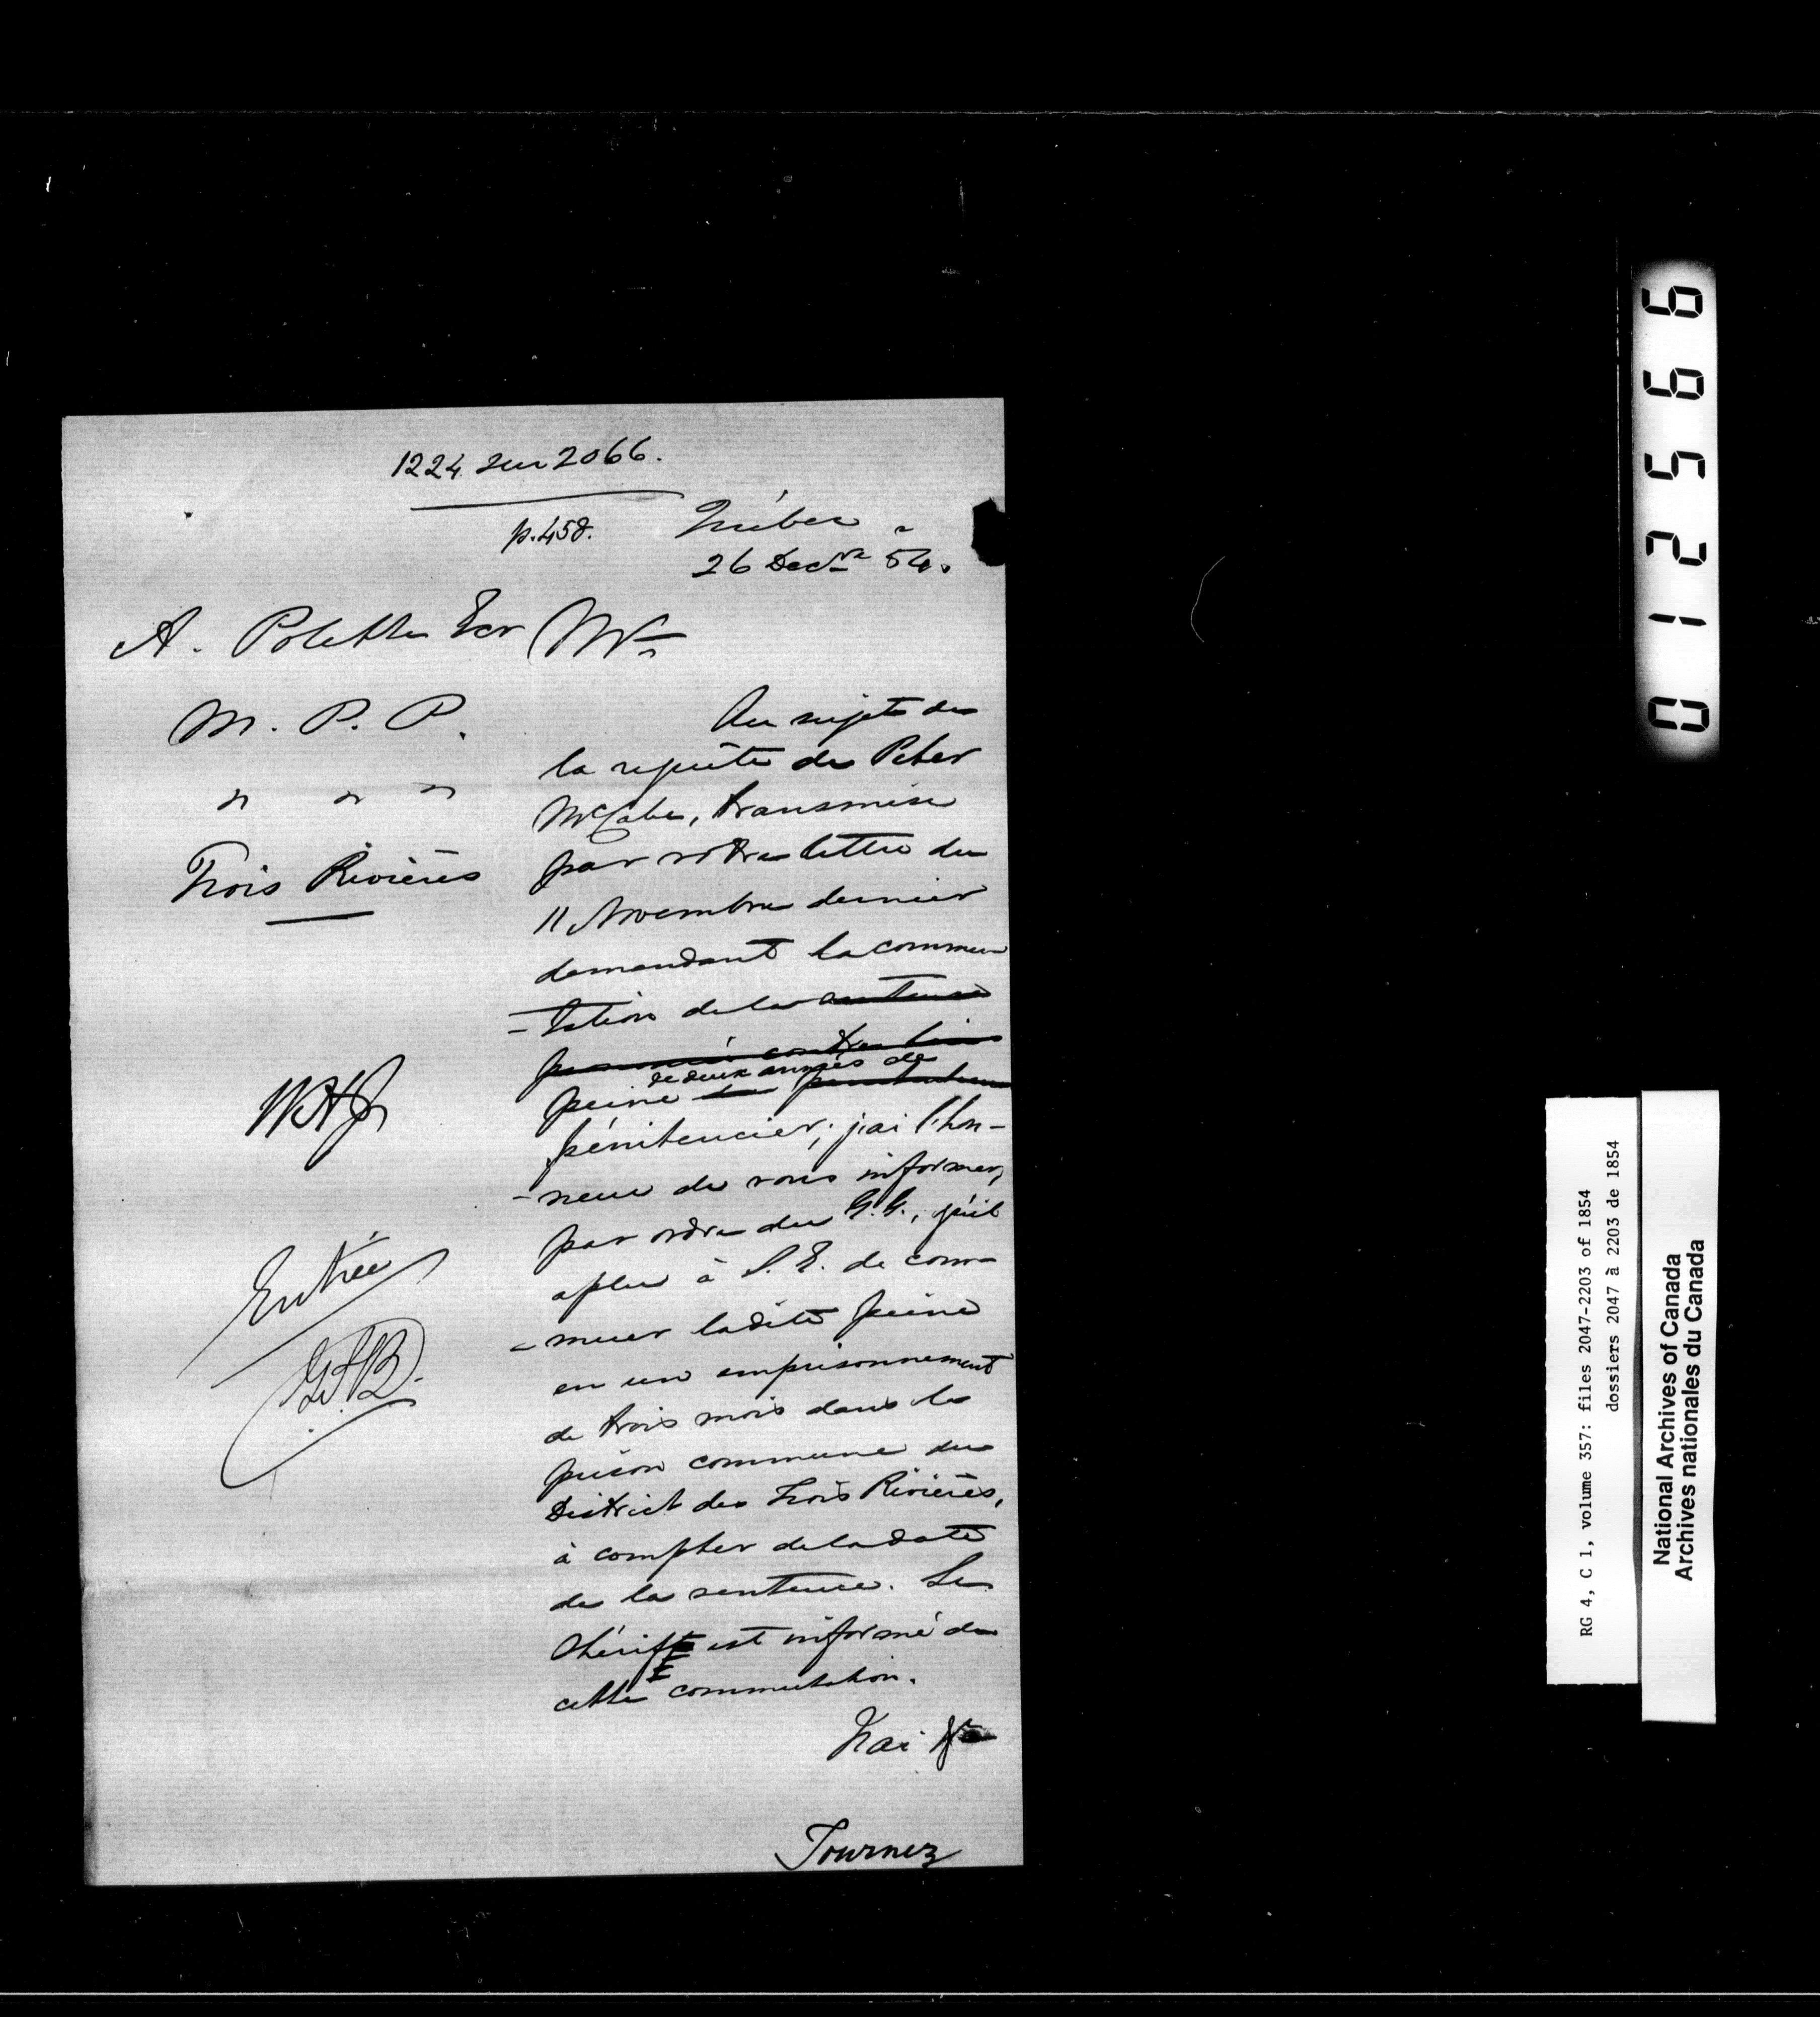 1224 sur 2066.
p. 458.
Québec
26 Decre 54.
A. Polette Ecr
M. P. P.
" " "
Trois Rivières
Mr
Au sujet de
la requête de Peter
McCabe, transmise
par votre lettre du
11 Novembre dernier
demandant la commu
=tation de la sentence
prononcée contre lui
de deux années de
peine de
pénitencier; j'ai l'hon-
-neur de vous informer,
par ordre du G.G., qu'il
a plu à S. E. de com-
=muer ladite peine
en un emprisonnement
de trois mois dans la
prison commune du
District des Trois Rivières,
à compter de la date
de la sentence. Le
Shérif est informé de
cette commutation.
J'ai &c
Tournez
Entrée
0 1 2 5 6 6
RG 4, C 1, volume 357: files 2047-2203 of 1854
dossiers 2047 à 2203 de 1854
National Archives of Canada
Archives nationales du Canada